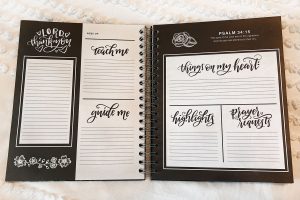 LORD
thank you
teach me
guide me
PSALM 34:15
things on my heart
highlights
prayer
requests